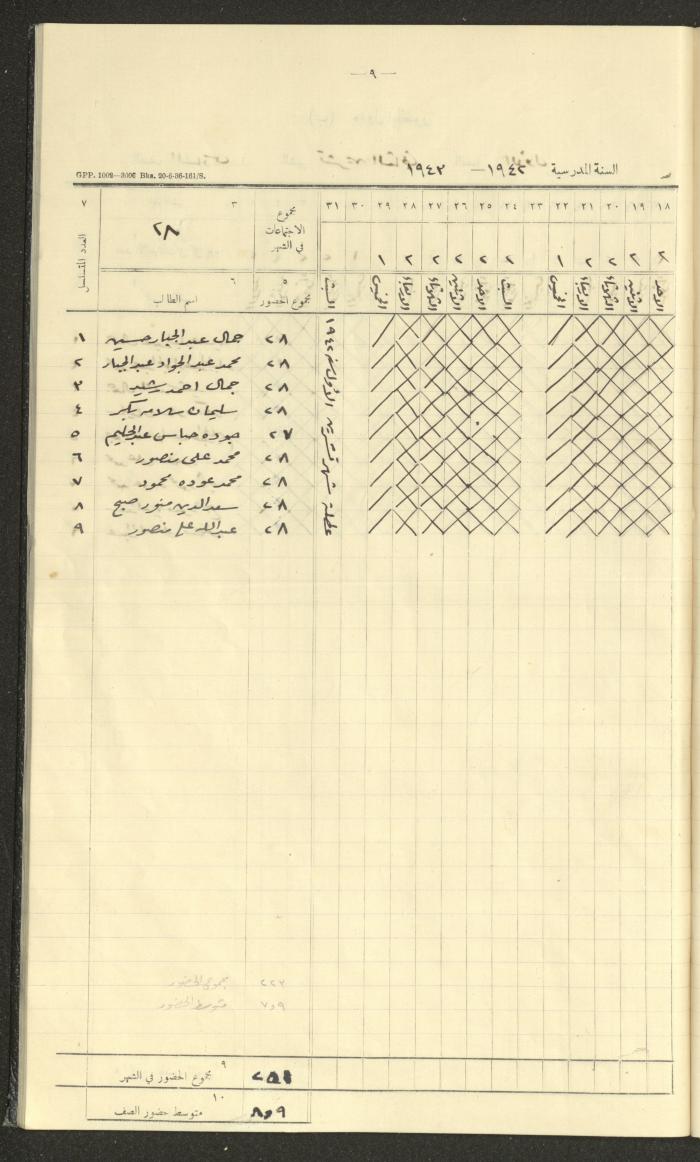 — ٩ —
السنة المدرسية ١٩٤٢ — ١٩٤٣
GPP. 1009—3000 Bks. 20-6-36-161/S.
١٨ ١٩ ٢٠ ٢١ ٢٢ ٢٣ ٢٤ ٢٥ ٢٦ ٢٧ ٢٨ ٢٩ ٣٠ ٣١ مجموع الاجتماعات في الشهر ٣ ٢٨ ٧ العدد المتسلسل
٢ ٢ ٢ ٢ ١ ٢ ٢ ٢ ٢ ٢ ١
الاحد الاثنين الثلاثاء الاربعاء الخميس السبت الاحد الاثنين الثلاثاء الاربعاء الخميس السبت ٥ مجموع الحضور ٦ اسم الطالب
عطلة شهر تشرين الأول سنة ١٩٤٢
٢٨ جمال عبد الجبار حسين ١
٢٨ محمد عبد الجواد عبد الجبار ٢
٢٨ جمال احمد رشيد ٣
٢٨ سليمان سلامه ٤
٢٧ جوده عباس عبد الحليم ٥
٢٨ محمد علي منصور ٦
٢٨ محمد عوده محمود ٧
٢٨ سعد الدين منور صبح ٨
٢٨ عبد الله علي منصور ٩
٢٢٧ مجموع الحضور
٧و٩ متوسط الحضور
٢٥١ ٩ مجموع الحضور في الشهر
٨و٩ ١٠ متوسط حضور الصف